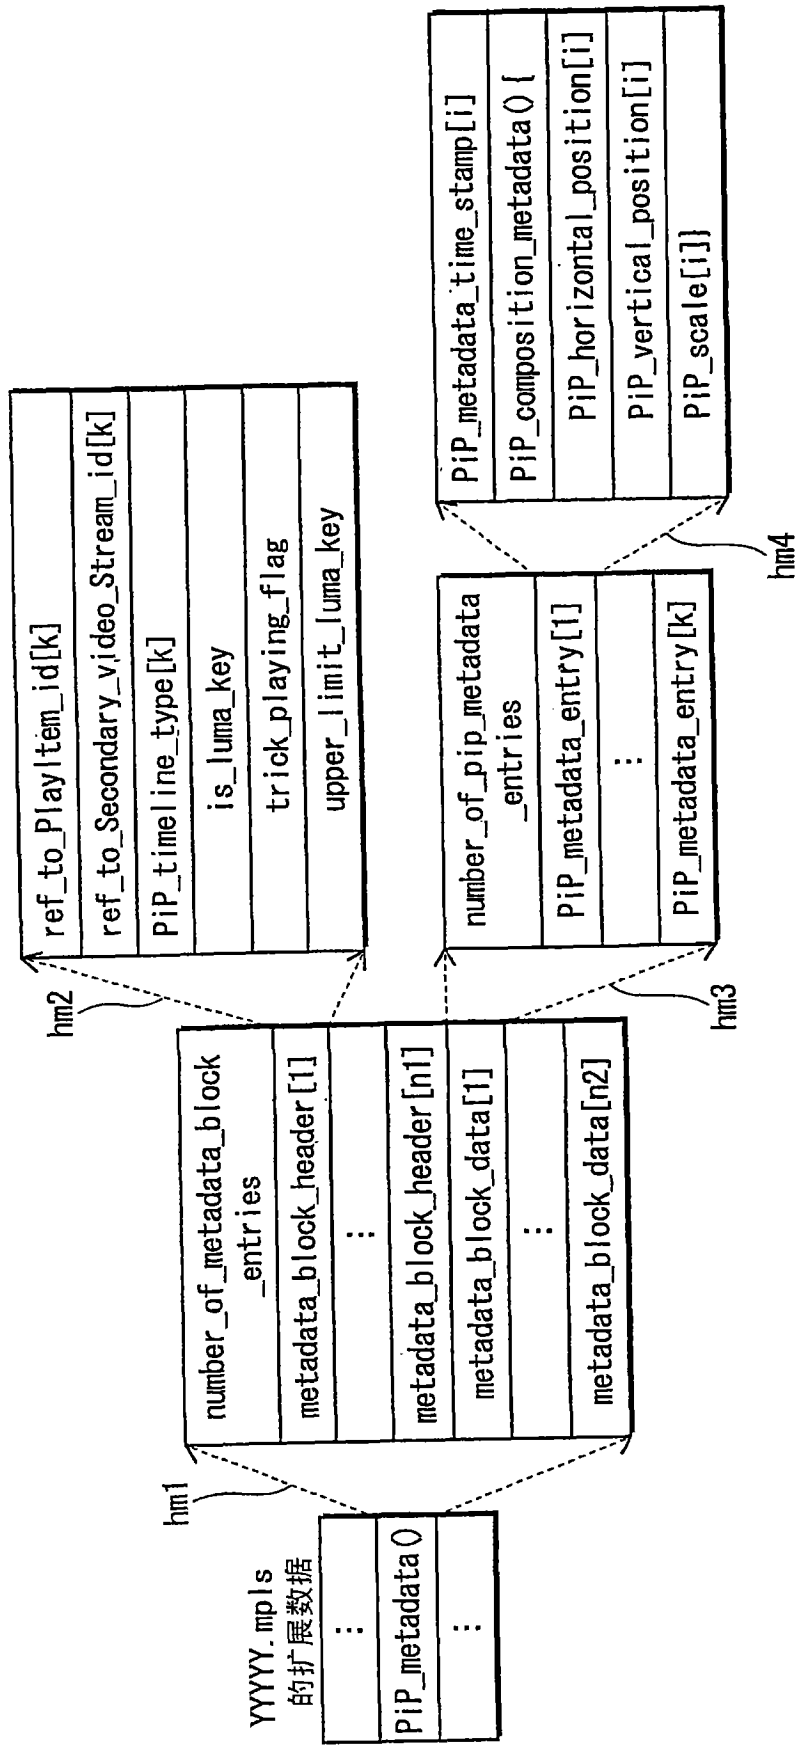 YYYYY.mpls
的扩展数据
...
PiP_metadata()
...
hm1
number_of_metadata_block
_entries
metadata_block_header[1]
...
metadata_block_header[n1]
metadata_block_data[1]
...
metadata_block_data[n2]
hm2
ref_to_PlayItem_id[k]
ref_to_Secondary_video_Stream_id[k]
PiP_timeline_type[k]
is_luma_key
trick_playing_flag
upper_limit_luma_key
hm3
number_of_pip_metadata
_entries
PiP_metadata_entry[1]
...
PiP_metadata_entry[k]
hm4
PiP_metadata_time_stamp[i]
PiP_composition_metadata() {
PiP_horizontal_position[i]
PiP_vertical_position[i]
PiP_scale[i]}